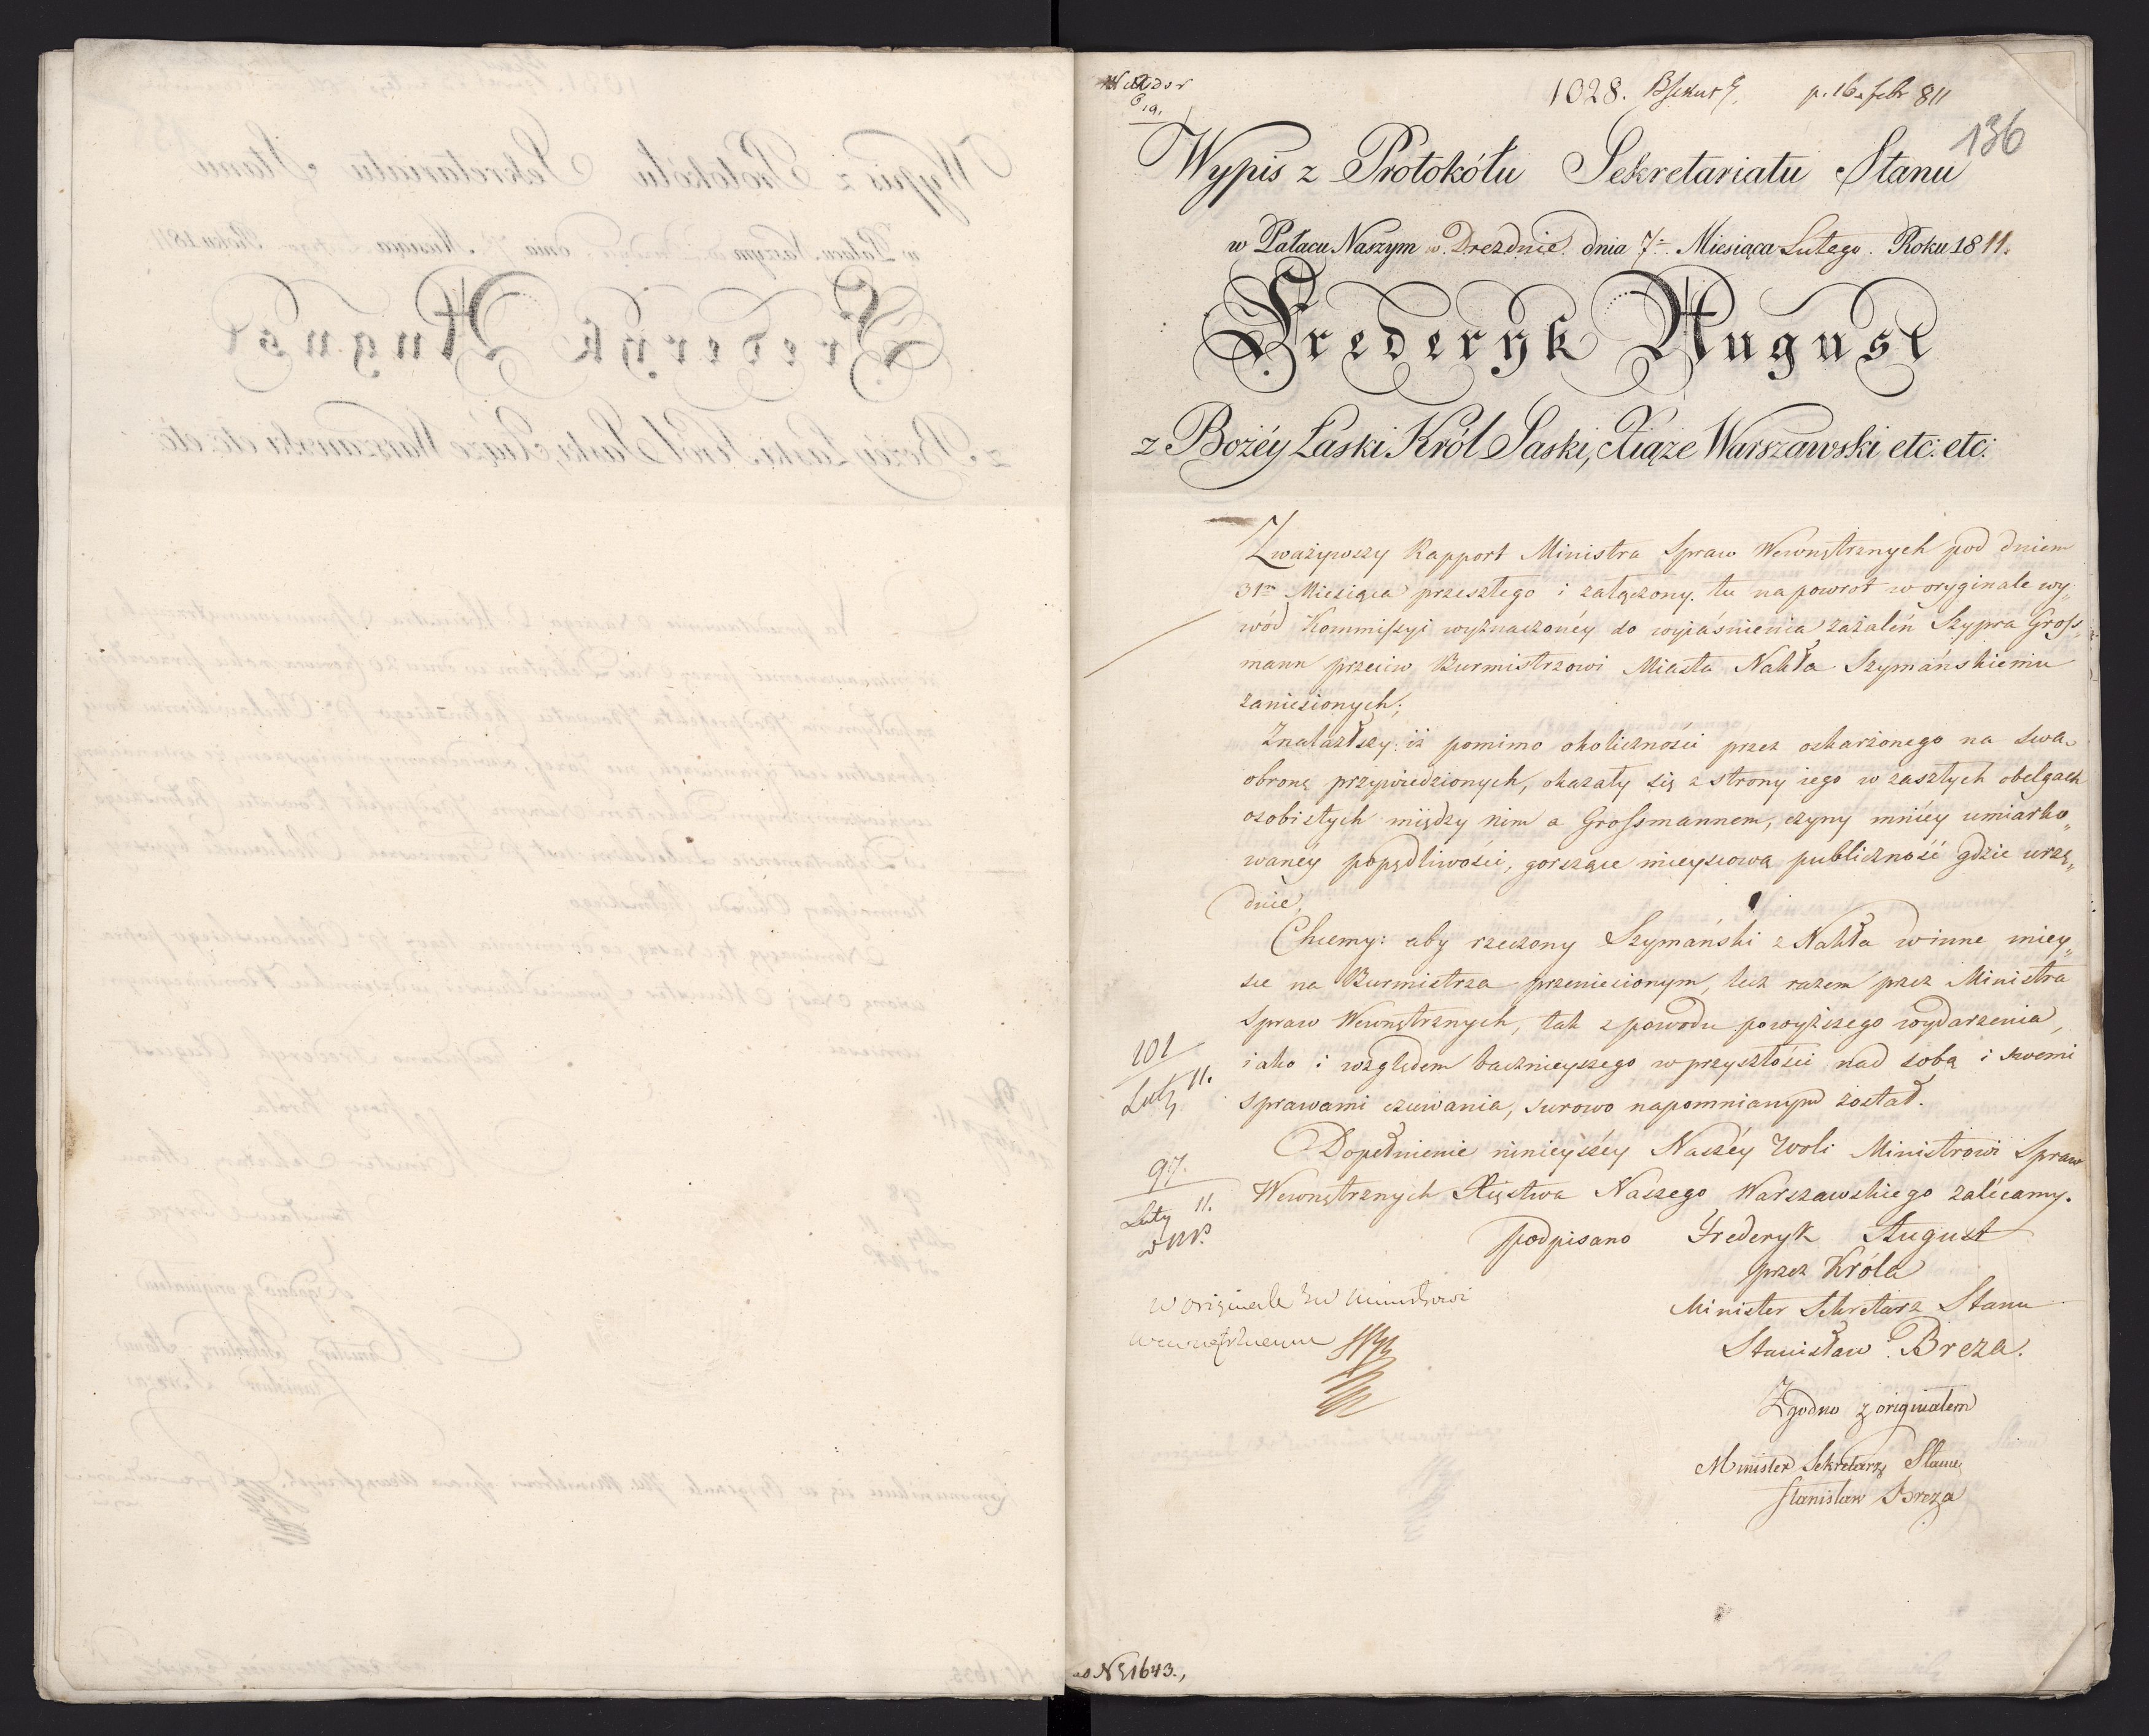 1028. p. 16. febr 811
136
Wypis z Protokółu Sekretariatu Stanu
w Pałacu Naszym w Dreznie dnia 7. Miesiąca Lutego. Roku 1811.
Frederyk August
z Bożéy Łaski Król Saski, Xiąże Warszawski etc: etc:
Zważywszy Rapport Ministra Spraw Wewnętrznych pod dniem
31m Miesiąca przeszłego i załączony tu napowrot w oryginale wy„
wód Kommissyi wyznaczonéy do wyiaśnienia zażaleń Szypra Gross„
mann przeciw Burmistrzowi Miasta Nakła Szymańskiemu
zaniesionych;
Znalazłszy: iż pomimo okoliczności przez oskarżonego na swą
obronę przywiedzionych, okazały się z strony iego w zaszłych obelgach
osobistych między nim a Grossmannem, czyny mniéy umiarko„
wanéy popędliwości, gorszące mieyscową publiczność gdzie urzę„
duie,
Chcemy: aby rzeczony Szymański z Nakła w inne miey„
sce na Burmistrza przeniesionym, lecz razem przez Ministra
Spraw Wewnętrznych, tak z powodu powyższego wydarzenia,
iako i względem bacznieyszego w przyszłości nad sobą i swemi
sprawami czuwania, surowo napomnianym został.
Dopełnienie ninieyszéy Naszéy Woli Ministrowi Spraw
Wewnętrznych Xięstwa Naszego Warszawskiego zalecamy.
101
Luty 11.
97.
Luty 11.
podpisano Frederyk August
przez Króla
Minister Sekretarz Stanu
Stanisław Breza.
w originale JW Ministrowi
Wewnętrznemu
Zgodno z originałem
Minister Sekretarz Stanu
Stanisław Breza
N 1643.,